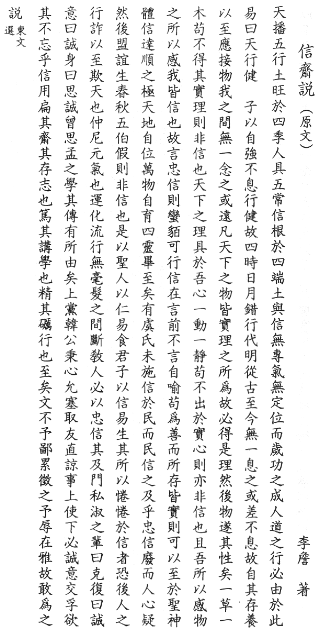 信齋說（原文）
李詹 著
天播五行土旺於四季人具五常信根於四端土與信無專氣無定位而歲功之成人道之行必由於此
易曰天行健 子以自強不息行健故四時日月錯行代明從古至今無一息之或差不息故自其存養
以至應接物我之間無一念之或遠凡天下之物皆實理之所爲故必得是理然後物遂其性矣一草一
木苟不得其實理則非信也天下之理具於吾心一動一靜苟不出於實心則亦非信也且吾所以感物
之所以感我皆信也故言忠信則蠻貊可行信在言前不言自喻苟爲善而所存皆實則可以至於聖神
體信達順之極天地自位萬物自育四靈畢至矣有虞氏未施信於民而民信之及乎忠信廢而人心疑
然後盟誼生春秋五伯假則非信也是以聖人以仁易食君子以信易生其所以惓惓於信者恐後人之
行詐以至欺天也仲尼元氣也運化流行無毫髮之間斷敎人必以忠信其及門私淑之輩曰克復曰誠
意曰誠身曰思誠曾思孟之學其傳有所由矣上黨韓公秉心允塞取友直諒事上使下必誠意交孚欲
其不忘乎信用扁其齋其存志也篤其講學也精其礪行也至矣文不予鄙累徵之予辱在雅故敢爲之
說 東文選